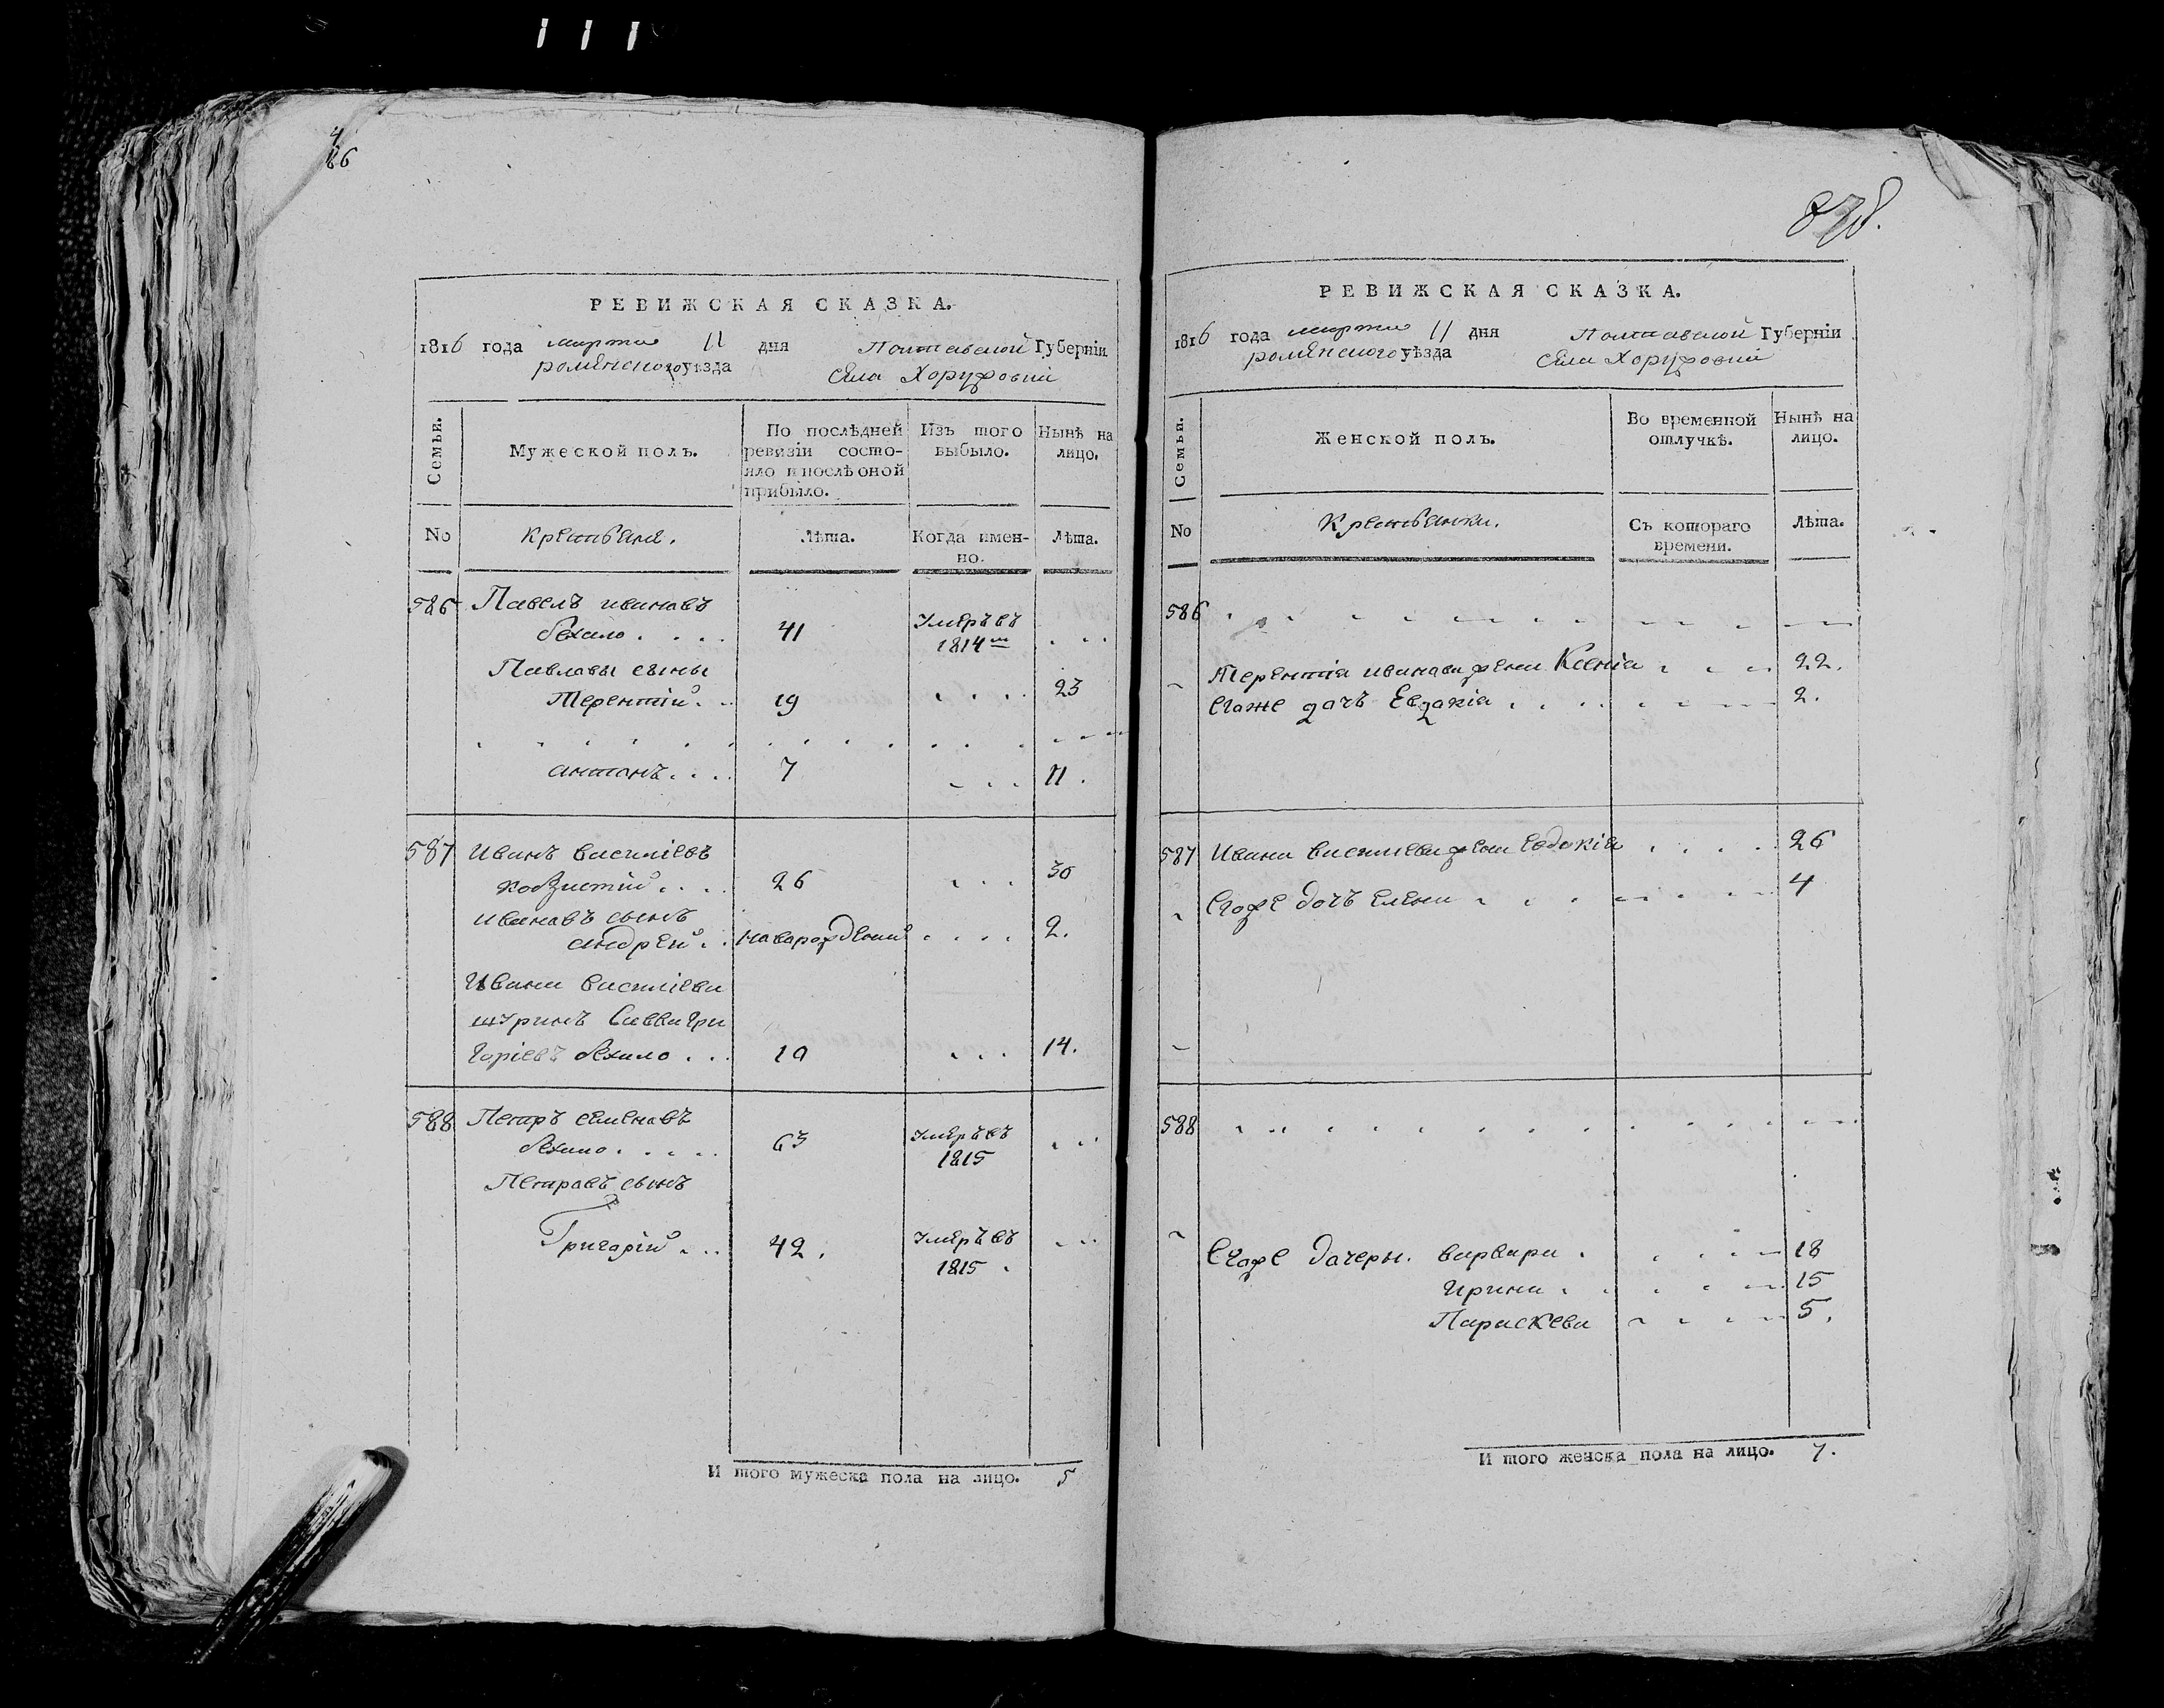 4
86
РЕВИЖСКАЯ СКАЗКА.
1816 года марта 11 дня Полтавской Губерніи
роменского уѣзда села Хоружовки
Семьи.
Мужеской полъ.
По послѣдней ревизіи состояло и послѣ оной прибыло.
Изъ того выбыло.
Нынѣ на лицо.
No
Крестьяне.
Лѣта.
Когда именно.
Лѣта.
586 Павелъ ивановъ
бехало . . . . 41 умеръ въ 1814м . . .
Павловы сыны
Терентій . . 19 . . . . 23
антонъ . . . 7 . . . 11 .
587 Иванъ василіевъ
. . . . 26 . . . 30
ивановъ сынъ
андрей . . новорожденный . . . . 2.
Ивана василіева
шуринъ Савва гри
горіевъ бехало . . . 10 . . . 14.
588 Петръ семеновъ
бехало . . . . . 63 умеръ въ 1815 . . .
Петровъ сынъ
Григорій . . . 42 . умеръ въ 1815 . . . .
И того мужеска пола на лицо. 5
878.
РЕВИЖСКАЯ СКАЗКА.
1816 года марта 11 дня Полтавской Губерніи
роменского уѣзда села Хоружовки
Семьи.
Женской полъ.
Во временной отлучкѣ.
Нынѣ на лицо.
No
Крестьянки.
Съ котораго времени.
Лѣта.
586
Терентія иванова жена Ксенія . . . 22.
егоже дочъ Евдокія . . . . . . . 2.
587 Ивана василіева жена евдокія . . . . 26
Егоже дочъ елена . . . . . . . 4
588
Егоже дочеры. варвара . . . . . 18
ирина . . . . 15
Параскева . . . . 5.
И того женска пола на лицо. 7.